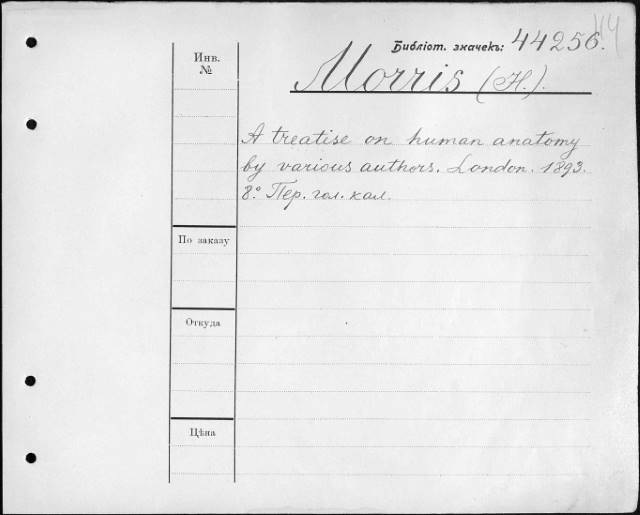 Библіот. значекъ: 44256.
Инв. №
Morris (H.).
A treatise on human anatomy
by various authors. London. 1893.
8° Пер. гол. кал.
По заказу
Откуда
Цѣна